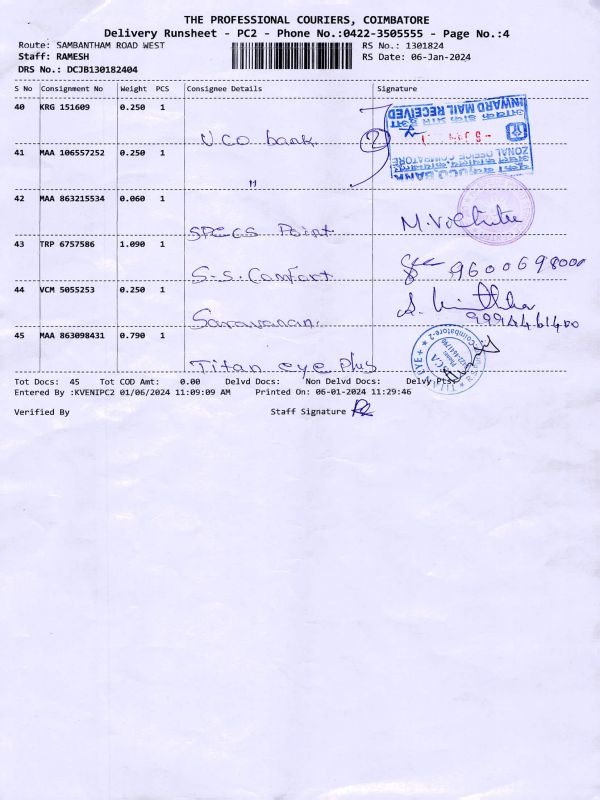 THE PROFESSIONAL COURIERS, COIMBATORE
Delivery Runsheet - PC2 - Phone No.:0422-3505555 - Page No.:4
Route: SAMBANTHAM ROAD WEST RS No.: 1301824
Staff: RAMESH RS Date: 06-Jan-2024
DRS No.: DCJB130182404
S No Consignment No Weight PCS Consignee Details Signature
40 KRG 151609 0.250 1 UCO bank 2
INWARD MAIL RECEIVED
41 MAA 106557252 0.250 1 "
ZONAL OFFICE, COIMBATORE
UCO BANK
42 MAA 863215534 0.060 1 SPECS Point
43 TRP 6757586 1.090 1 S.S. Comfort 9600698000
44 VCM 5055253 0.250 1 Saravanan
45 MAA 863098431 0.790 1 Titan eye Plus
Tot Docs: 45 Tot COD Amt: 0.00 Delvd Docs: Non Delvd Docs: Delvy Pts:
Entered By :KVENIPC2 01/06/2024 11:09:09 AM Printed On: 06-01-2024 11:29:46
Verified By Staff Signature